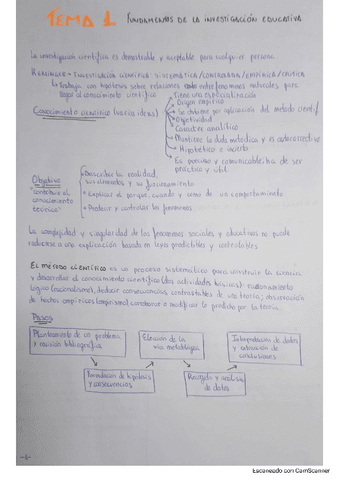 TEMA 1 FUNDAMENTOS DE LA INVESTIGACIÓN EDUCATIVA
La investigación científica es demostrable y aceptable para cualquier persona.
KERLINGER → Investigación científica: SISTEMÁTICA / CONTROLADA / EMPÍRICA / CRÍTICA
Trabaja con hipótesis sobre relaciones entre fenómenos naturales para
llegar al conocimiento científico
Tiene una especialización
Origen empírico
Se obtiene por aplicación del método científ
Conocimiento científico (varias ideas)
Objetividad
Carácter analítico
Mantiene la duda metódica y es autocorrectivo
Hipotético e incierto
Es preciso y comunicable: ha de ser
práctico y útil
Describir la realidad,
sus elementos y su funcionamiento
Objetivo
contribuir al
conocimiento
teórico
Explicar el porque, cuando y como de un comportamiento
Predecir y controlar los fenómenos
La complejidad y singularidad de los fenómenos sociales y educativos no puede
reducirse a una explicación basada en leyes predictibles y controlables
EL método científico es un proceso sistemático para construir la ciencia
y desarrollar el conocimiento científico (dos actividades básicas): razonamiento
lógico (racionalismo), deducir consecuencias contrastables de una teoría; observación
de hechos empíricos (empirismo), corroborar o modificar lo predicho por la teoría.
Pasos
Planteamiento de un problema
y revisión bibliográfica
Elección de la
vía metodológica
Interpretación de datos
y extracción de
conclusiones
Formulación de hipótesis
y consecuencias
Recogida y análisis
de datos
-1-
Escaneado con CamScanner